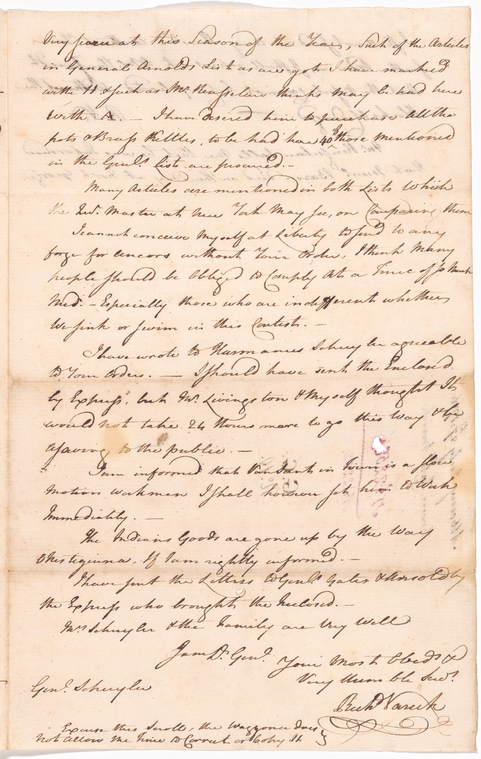 Very scarce at this Season of the Year, Such of the Articles
in General Arnolds List as are got I have marked
with H & Such as Mr. Rensselaer thinks may be had here
with A – I have desired him to purchase All the
pots & Brass Kettles, to be had here 40 those mentioned
in the Genls. Lists are procured. –
Many Articles are mentioned in both Lists which
the Qr. Master at New York May, see, on Comparing them
I cannot conceive Myself at Liberty to send to any
forge for Anchors without Your Orders, I think Many
people should be Obliged to Comply At a Time of so Much
Need. – Especially those who are indifferent whether
We sink or swim in this Contest. –
I have wrote to Harmanus Schuyler agreeable
to Your Orders. – I should have sent the Enclosed
by Express, but Mr. Livingston & Myself thought It
would not take 24 Hours more to go this Way & be
a saving to the public. –
I am informed that Van Sant in Town is a slow
Motion workman I shall however set him to Work
Immediately. –
The Indians Goods are gone up by the Way
Nestigiuna, If I am rightly informed. –
I have sent the Letters to Genls. Gates & Arnold by
the Express who brought the Inclosed. –
Mrs Schuyler & the Family are very well
I am Dr. Genl. Your Most Obedt. &
Very Humble Servt.
Richd Varick
Genl. Schuyler
Excuse this Scroll, the Waggoner does
not allow me Time to Correct or Copy It